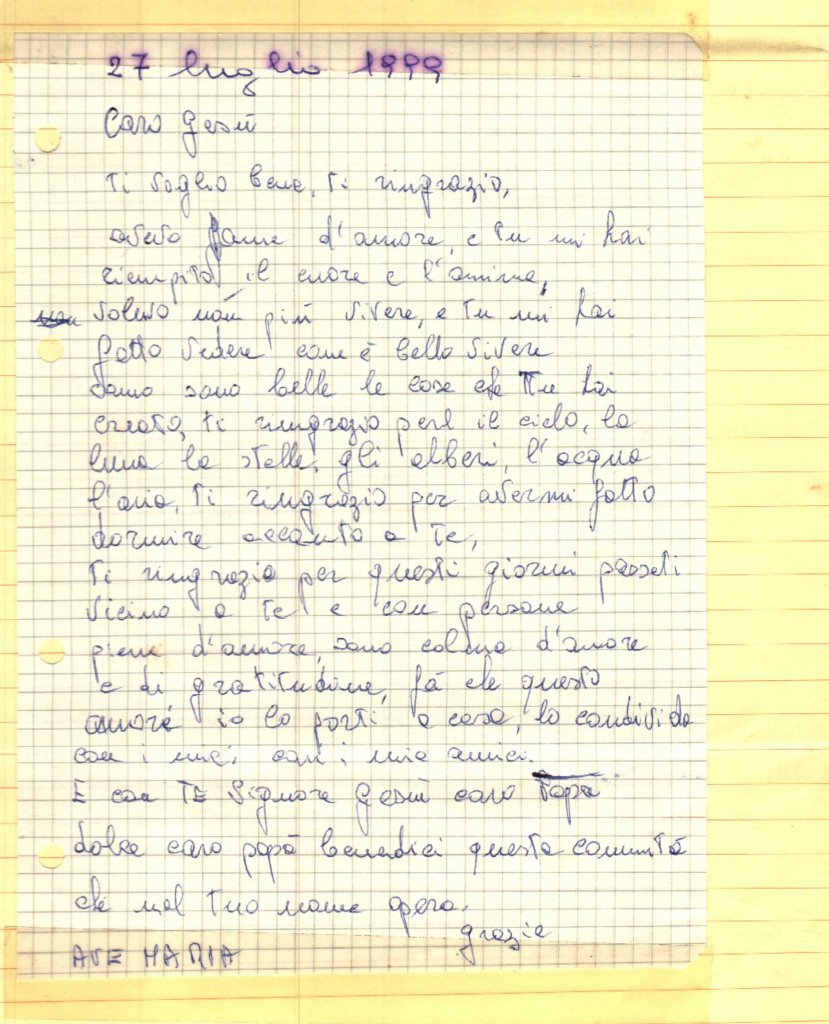 27 luglio 1999
Caro Gesù
Ti voglio bene, Ti ringrazio,
avevo fame d'amore, e Tu mi hai
riempito il cuore e l'anima,
volevo non più vivere, e Tu mi hai
fatto vedere com'è bello vivere
como sono belle le cose che Tu hai
creato, ti ringrazio per il cielo, la
luna la stelle, gli alberi, l'acqua
l'aria, Ti ringrazio per avermi fatto
dormire accanto a Te,
Ti ringrazio per questi giorni passati
vicino a Te e con persone
piene d'amore, sono colma d'amore
e di gratitudine, fà che questo
amore io lo porti a casa, lo condivida
con i miei cari i mie amici.
E con TE Signore Gesù caro Papà
dolce caro papà benedici questa comunità
che nel Tuo nome opera.
grazie
AVE MARIA